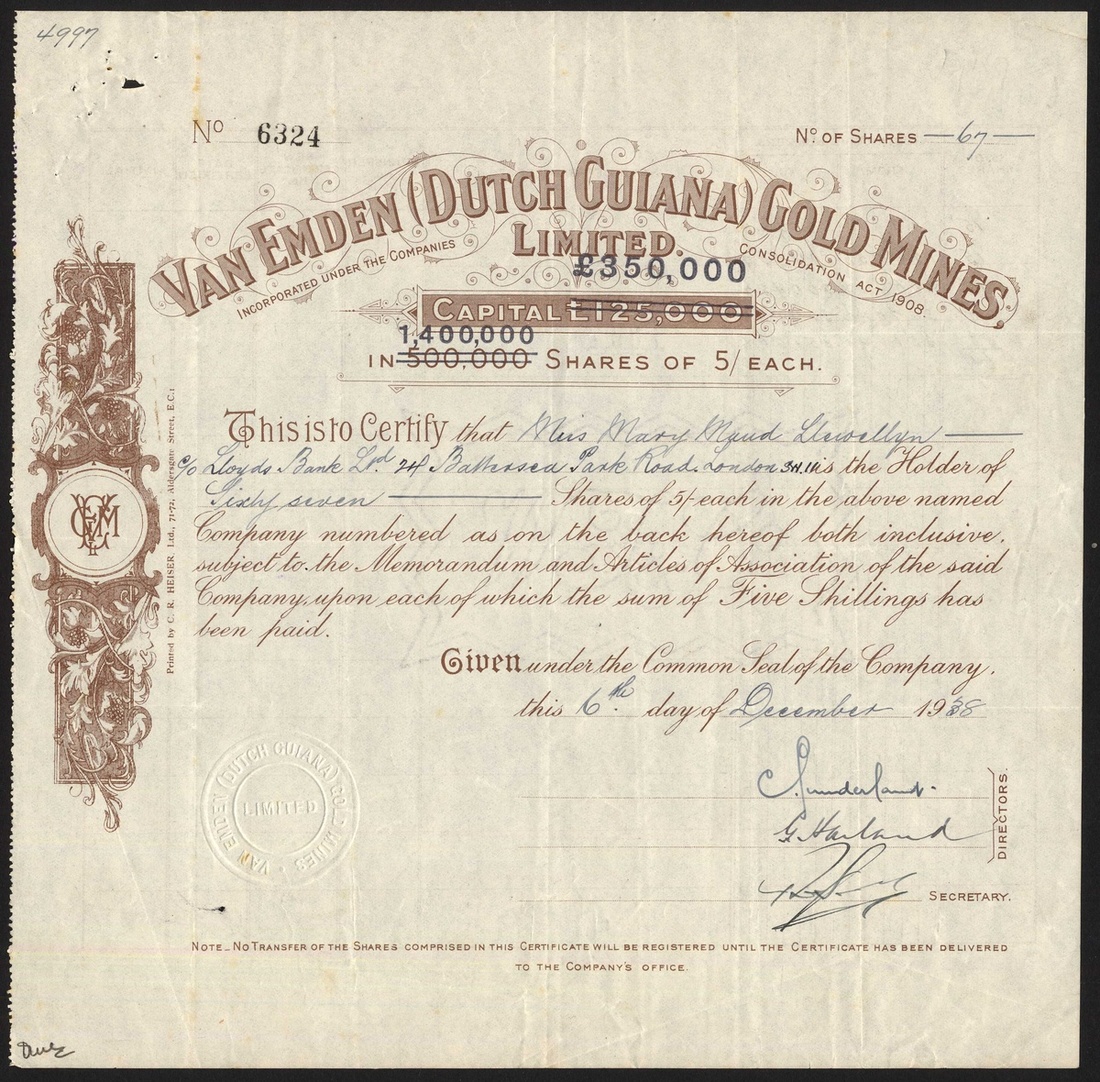 4997
No 6324
No. OF SHARES — 67 —
VAN EMDEN (DUTCH GUIANA) GOLD MINES,
LIMITED.
INCORPORATED UNDER THE COMPANIES CONSOLIDATION ACT 1908.
£350,000
CAPITAL £125,000
1,400,000
IN 500,000 SHARES OF 5/ EACH.
This is to Certify that Miss Mary Maud Llewellyn
c/o Lloyds Bank Ltd 24 Battersea Park Road. London is the Holder of
Sixty seven — Shares of 5/- each in the above named
Company numbered as on the back hereof both inclusive,
subject to the Memorandum and Articles of Association of the said
Company, upon each of which the sum of Five Shillings has
been paid.
Given under the Common Seal of the Company,
this 6th day of December 1938
Printed by C. R. HEISER Ltd., 71-72, Aldersgate Street, E.C.1
VAN EMDEN (DUTCH GUIANA) GOLD MINES.
LIMITED
C Sunderland.
G Harland
DIRECTORS.
SECRETARY.
NOTE_ NO TRANSFER OF THE SHARES COMPRISED IN THIS CERTIFICATE WILL BE REGISTERED UNTIL THE CERTIFICATE HAS BEEN DELIVERED
TO THE COMPANY'S OFFICE.